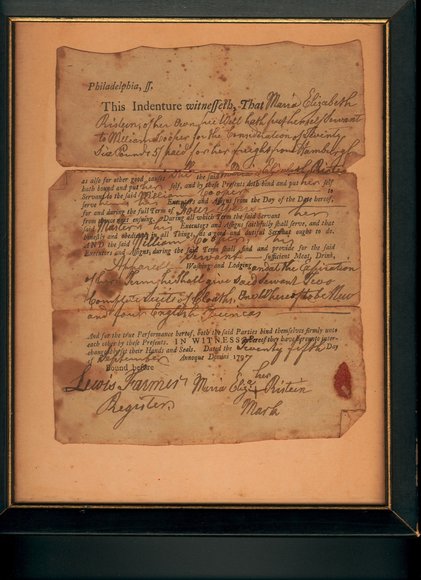 Philadelphia, ſſ.
This Indenture witneſſeth, That Maria Elizabeth
Ristein of her own free Will hath put herself Servant
to William Cooper for the Consideration of Seventy
Six Pounds paid for her freight from Hamburgh
as alſo for other good cauſes the ſaid Maria Elizabeth Ristein
hath bound and put her ſelf, and by theſe Preſents doth bind and put her ſelf
Servant to the ſaid William Cooper to
ſerve Executors and Aſſigns from the Day of the Date hereof,
for and during the full Term of Four Years
from thence next enſuing. During all which Term the ſaid Servant her
ſaid Master his Executors and Aſſigns faithfully ſhall ſerve, and that
honeſtly and obediently in all Things, as a good and dutiful Servant ought to do.
AND the ſaid William Cooper his
Executors and Aſſigns, during the ſaid Term ſhall find and provide for the ſaid
Servant ſufficient Meat, Drink,
Apparel Waſhing and Lodging and at the Expiration
of her Term shall give said Servant Two
Complete Suits of Cloaths, One Whereof to be New
and four English Guineas
And for the true Performance hereof, both the ſaid Parties bind themſelves firmly unto
each other by theſe Preſents. IN WITNESS whereof they have hereunto inter-
changeably ſet their Hands and Seals. Dated the Seventy fifth Day
of September Annoque Domini 1797
Bound before
Lewis Farmer Maria Eliza her Ristein
Register Mark